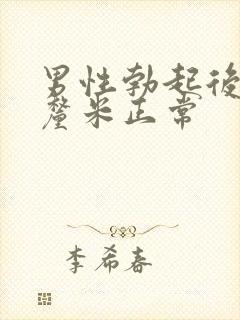 男性勃起後
釐米正常
李希春